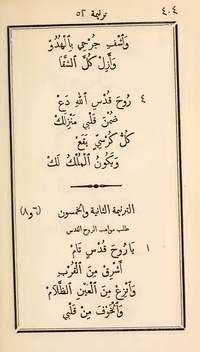 ٤٠٤ ترنيمة ٥٢
وَٱشْفِ جُرْحِي بِٱلْهُدُوّ
وَأَزِلْ كُلَّ ٱلشَّقَا
٤ رُوحَ قُدْسِ ٱللّٰهِ دَعْ
ضِمْنَ قَلْبِي مَنْزِلَكْ
كُلُّ كُرْسِيٍّ يَقَعْ
وَيَكُونُ ٱلْمُلْكُ لَكْ
الترنيمة الثانية والخمسون (٦و٨)
طلب مواهب الروح القدس
١ يَا رُوحَ قُدْسٍ تَامْ
أَشْرِقْ مِنَ ٱلْقُرْبِ
وَٱنْزِعْ مِنَ ٱلْعَيْنِ ٱلظَّلَامْ
وَٱلْخَوْفَ مِنْ قَلْبِي